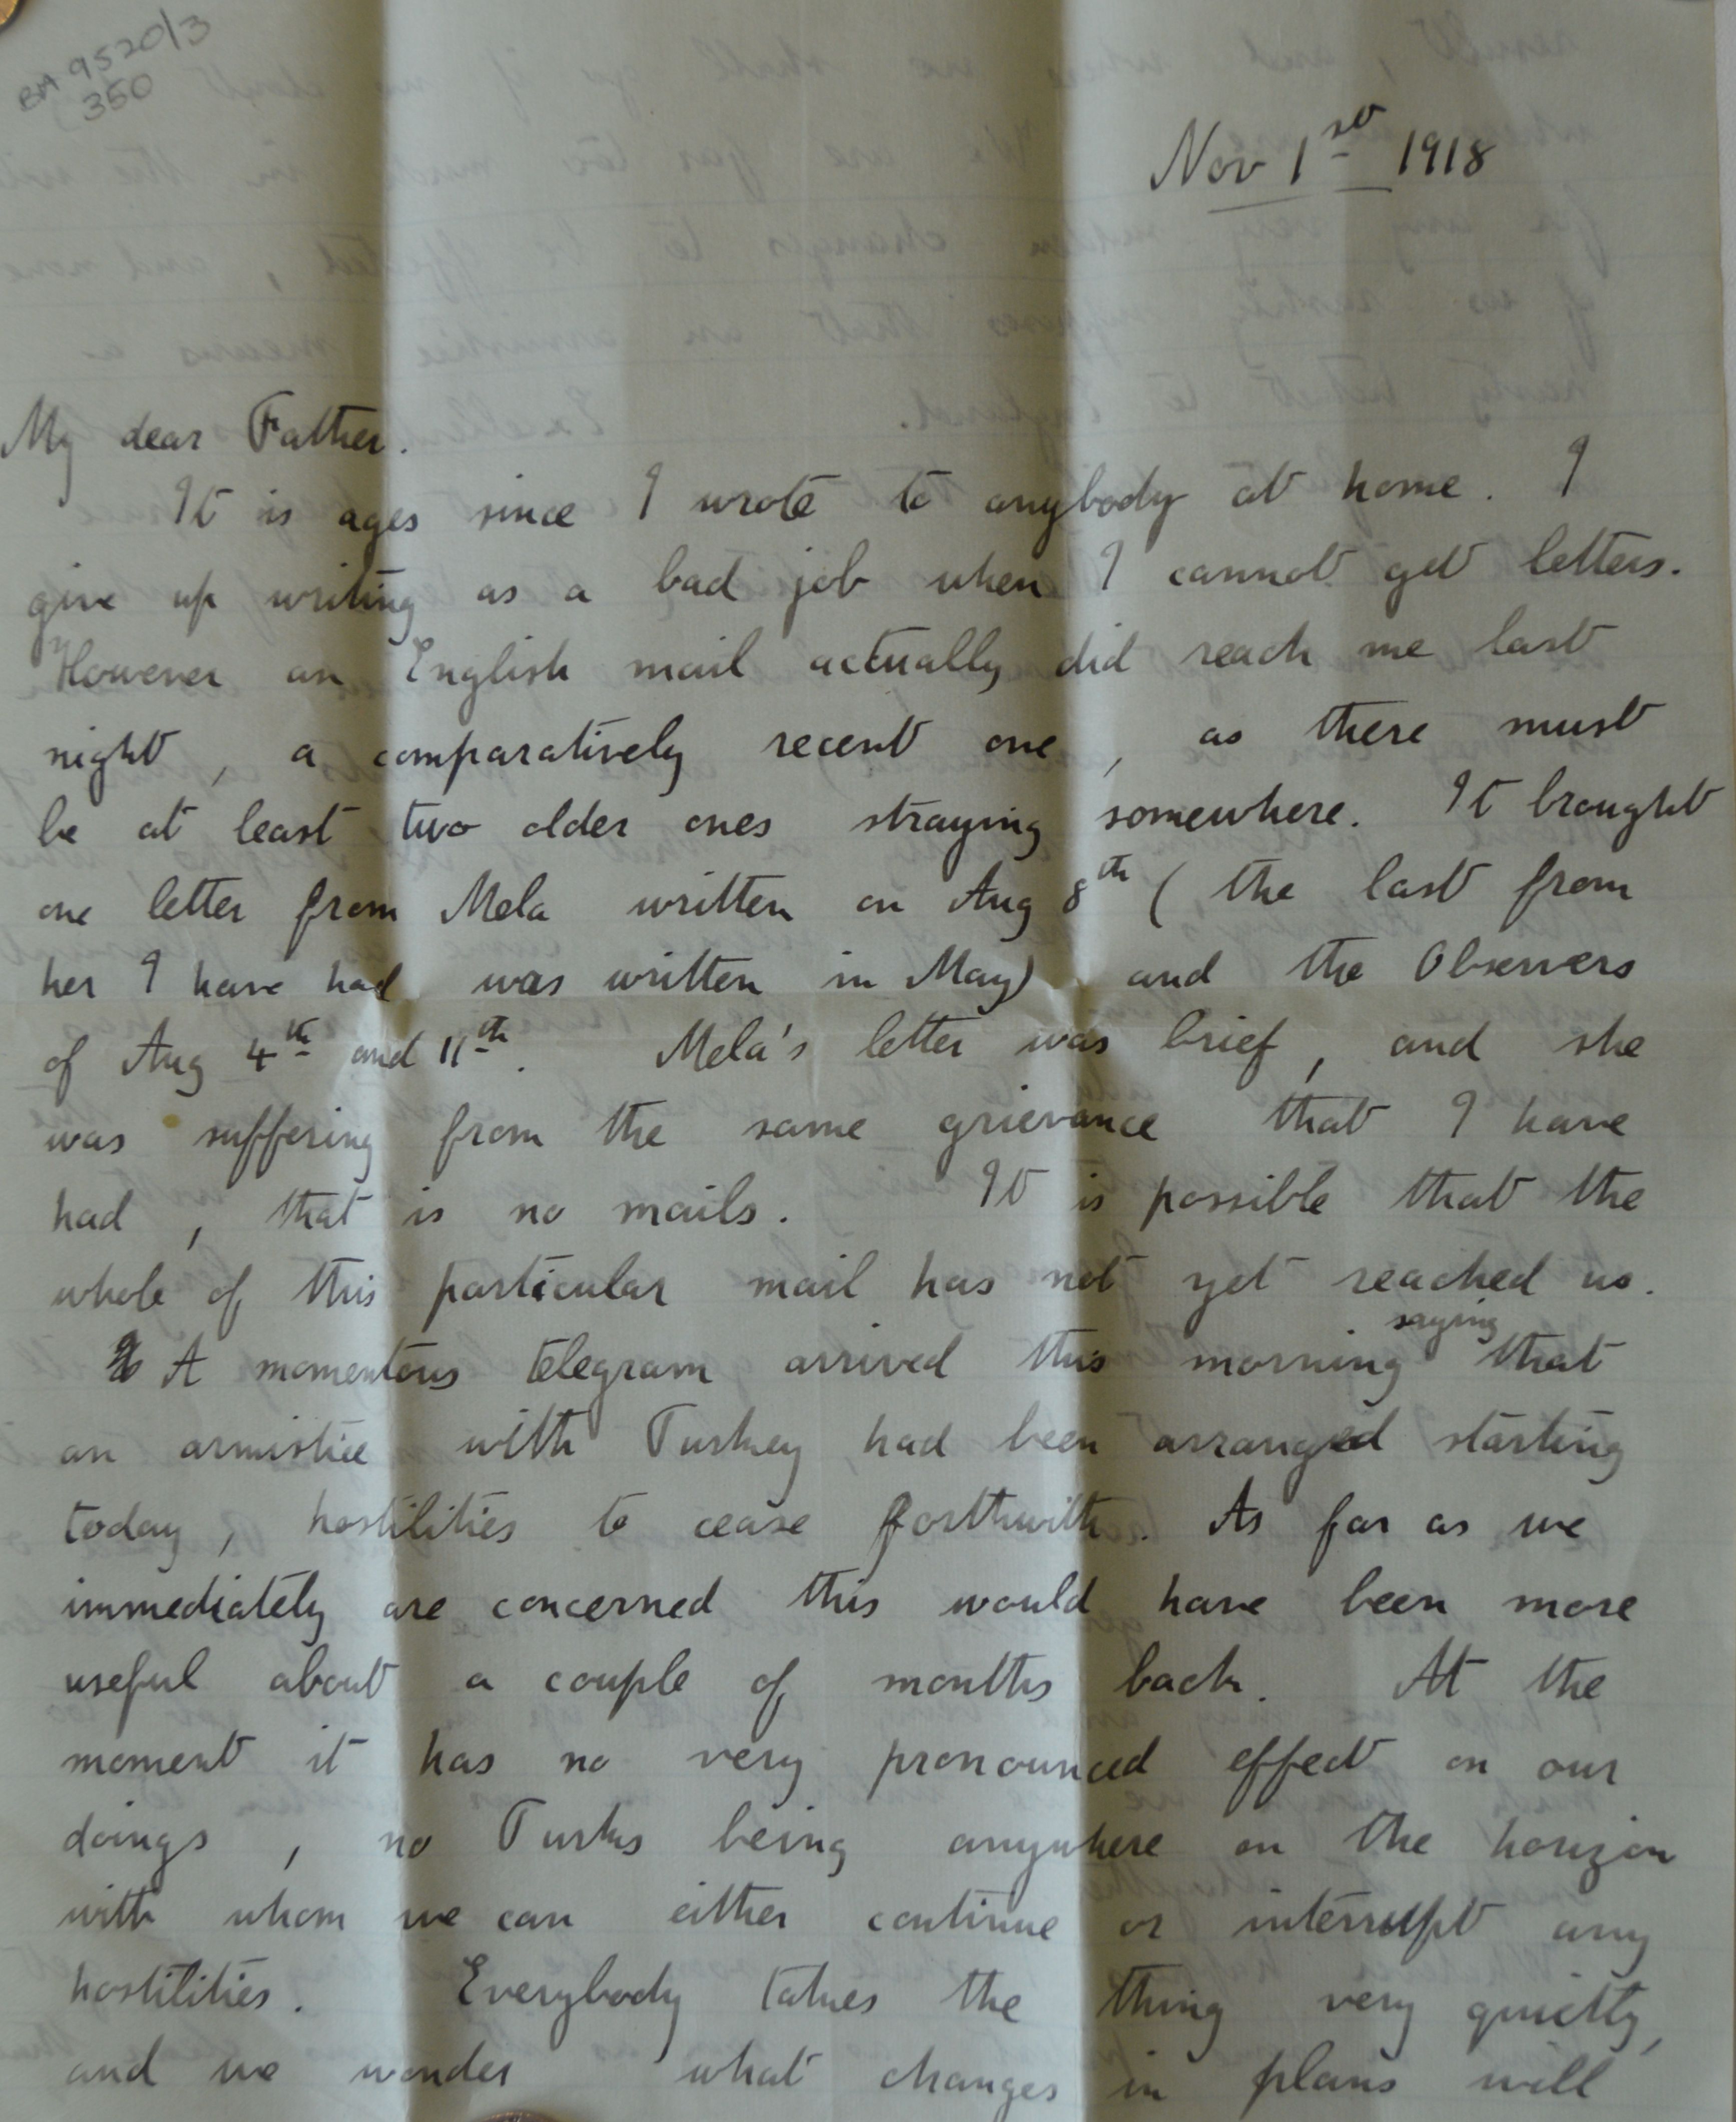 BA 9520/3
350
Nov 1st 1918
My dear Father.
It is ages since I wrote to anybody at home. I
give up writing as a bad job when I cannot get letters.
However an English mail actually did reach me last
night, a comparatively recent one, as there must
be at least two older ones straying somewhere. It brought
one letter from Mela written on Aug 8th (the last from
her I have had was written in May) and the Observers
of Aug 4th and 11th. Mela's letter was brief, and she
was suffering from the same grievance that I have
had, that is no mails. It is possible that the
whole of this particular mail has not yet reached us.
A momentous telegram arrived this morning saying that
an armistice with Turkey, had been arranged starting
today, hostilities to cease forthwith. As far as we
immediately are concerned this would have been more
useful about a couple of months back. At the
moment it has no very pronounced effect on our
doings, no Turks being anywhere on the horizon
with whom we can either continue or interrupt any
hostilities. Everybody takes the thing very quietly,
and we wonder what changes in plans will